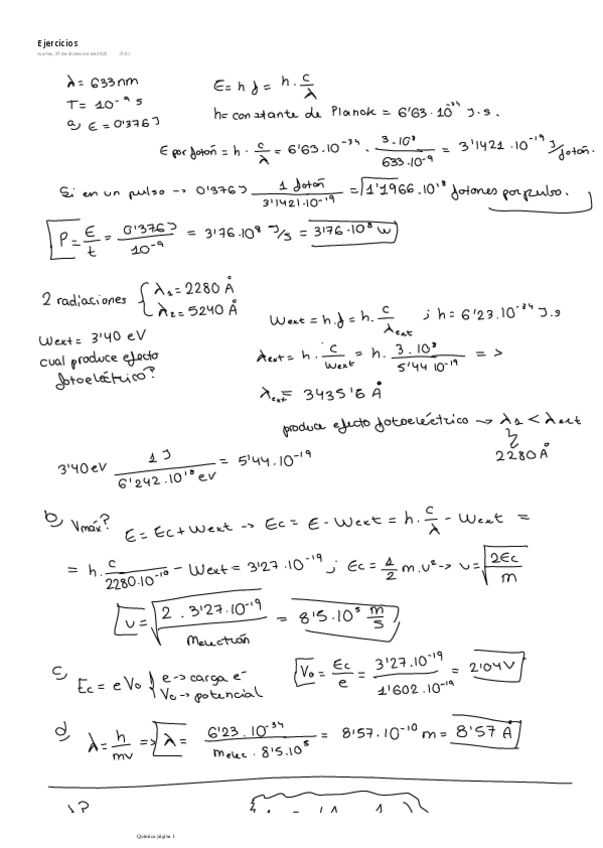 Ejercicios
λ = 633 nm
T = 10⁻⁹ s
a) E = 0'376 J
E = h f = h · c/λ
h = constante de Planck = 6'63 · 10⁻³⁴ J·s.
E por fotón = h · c/λ = 6'63 · 10⁻³⁴ · 3·10⁸/633·10⁻⁹ = 3'1421 · 10⁻¹⁹ J/fotón.
Si en un pulso → 0'376 J 1 fotón/3'1421·10⁻¹⁹ = 1'1966 · 10¹⁸ fotones por pulso.
P = E/t = 0'376 J/10⁻⁹ = 3'76 · 10⁸ J/s = 3'76 · 10⁸ W
2 radiaciones { λ₁ = 2280 Å
λ₂ = 5240 Å
Wext = 3'40 eV
cual produce efecto
fotoeléctrico?
Wext = h·f = h · c/λext ; h = 6'23 · 10⁻³⁴ J·s
λext = h · c/Wext = h · 3·10⁸/5'44·10⁻¹⁹ = >
λext = 3435'6 Å
produce efecto fotoeléctrico → λ₁ < λext
2280 Å
3'40 eV 1 J/6'242·10¹⁸ eV = 5'44 · 10⁻¹⁹
b) Vmáx? E = Ec + Wext → Ec = E - Wext = h · c/λ - Wext =
= h · c/2280·10⁻¹⁰ - Wext = 3'27 · 10⁻¹⁹ ; Ec = 1/2 m·v² → v = √(2Ec/m)
v = √(2 · 3'27·10⁻¹⁹/melectrón) = 8'5 · 10⁵ m/s
c) Ec = e V₀ { e → carga e⁻
V₀ → potencial
V₀ = Ec/e = 3'27·10⁻¹⁹/1'602·10⁻¹⁹ = 2'04 V
d) λ = h/mv => λ = 6'23·10⁻³⁴/melec · 8'5·10⁵ = 8'57 · 10⁻¹⁰ m = 8'57 Å
Química página 1